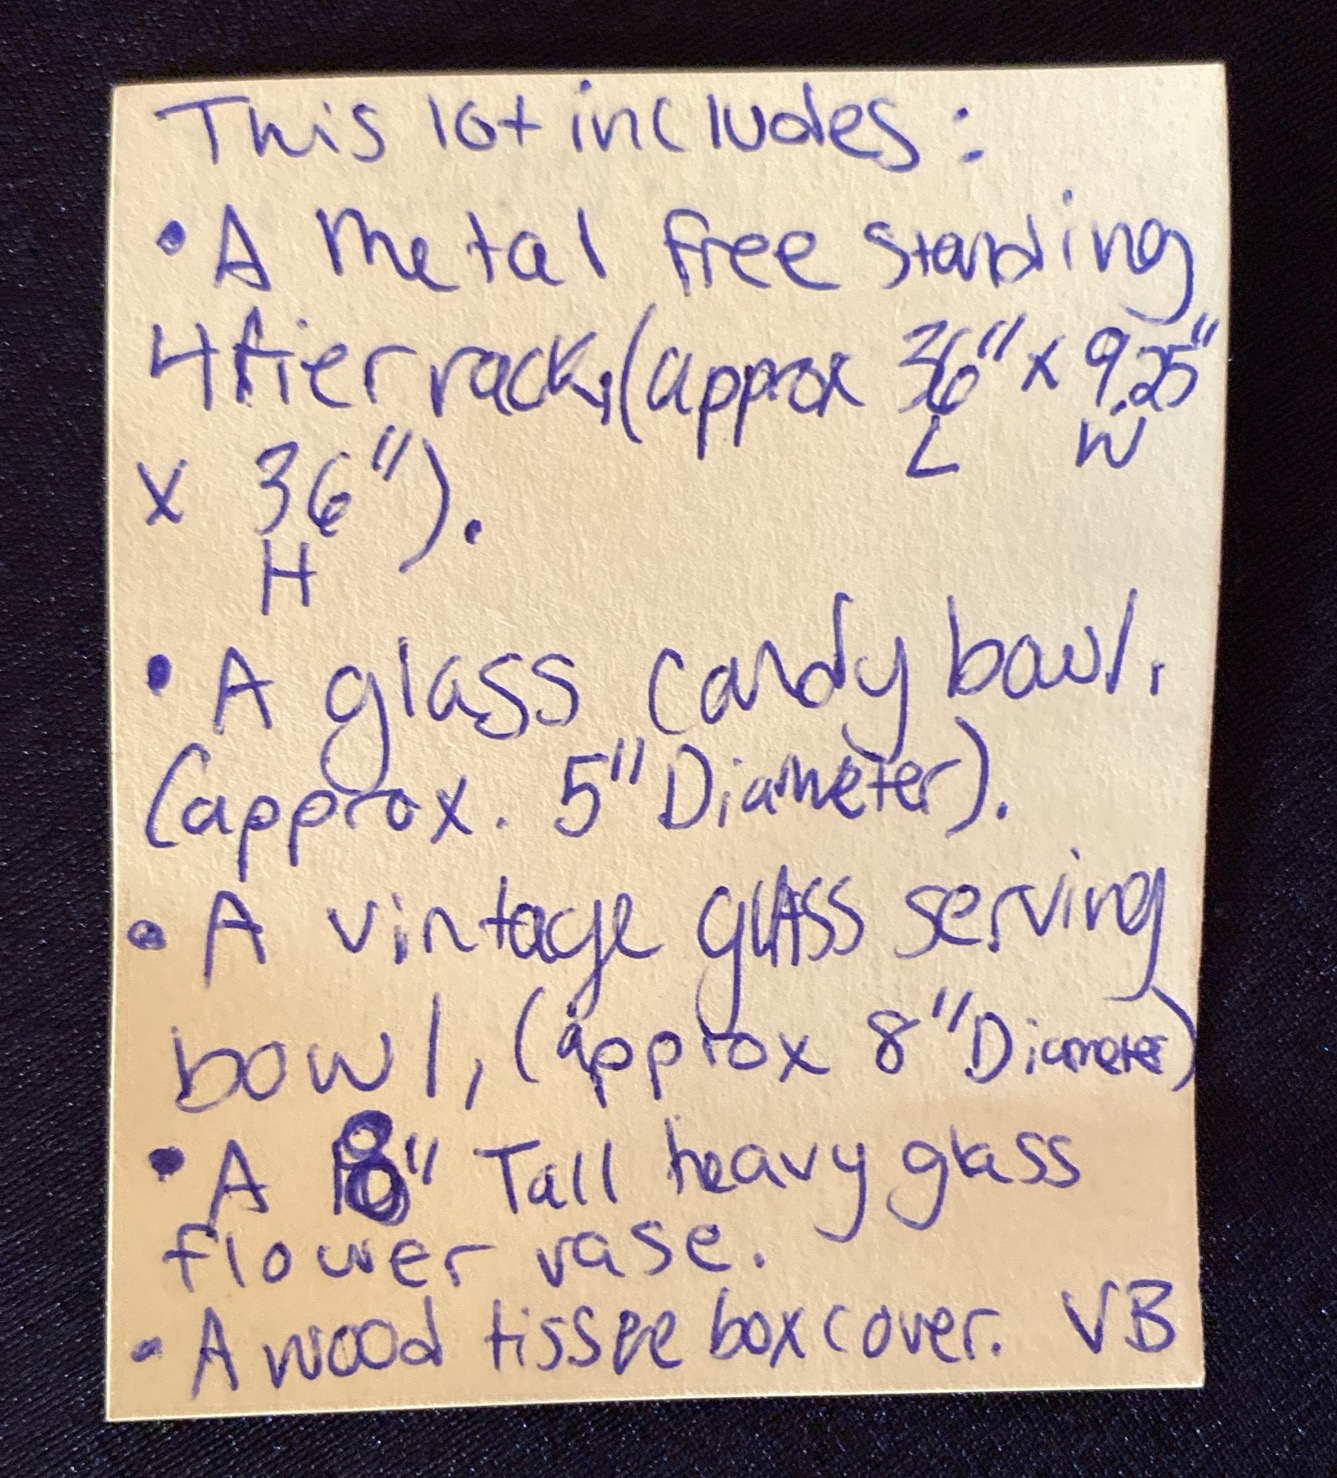 This lot includes:
• A metal free standing
4 tier rack, (approx 36" x 9.25"
L W
x 36").
H
• A glass candy bowl.
(approx. 5" Diameter).
• A vintage glass serving
bowl, (approx 8" Diameter)
• A 8" Tall heavy glass
flower vase.
• A wood tissue box cover. VB